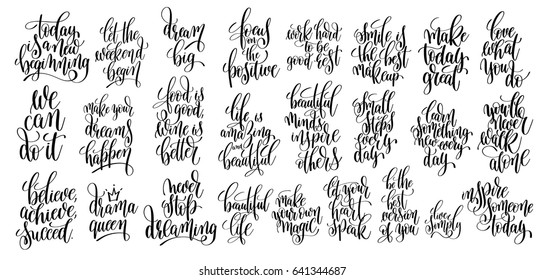 today
is a new
beginning
let the
weekend
begin
dream
big
focus
on
the
positive
work hard
to be
good rest
smile is
the best
makeup
make
today
great
love
what
you
do
we
can
do it
make your
dreams
happen
food is
good
wine is
better
life is
amazing
and
beautiful
beautiful
minds
inspire
others
small
steps
every
day
learn
something
new every
day
you'll
never
walk
alone
believe,
achieve,
succeed.
drama
queen
never
stop
dreaming
beautiful
life
make
your own
magic
let your
heart
speak
be the
best
version
of you
live
simply
inspire
someone
today
www.shutterstock.com · 641344687